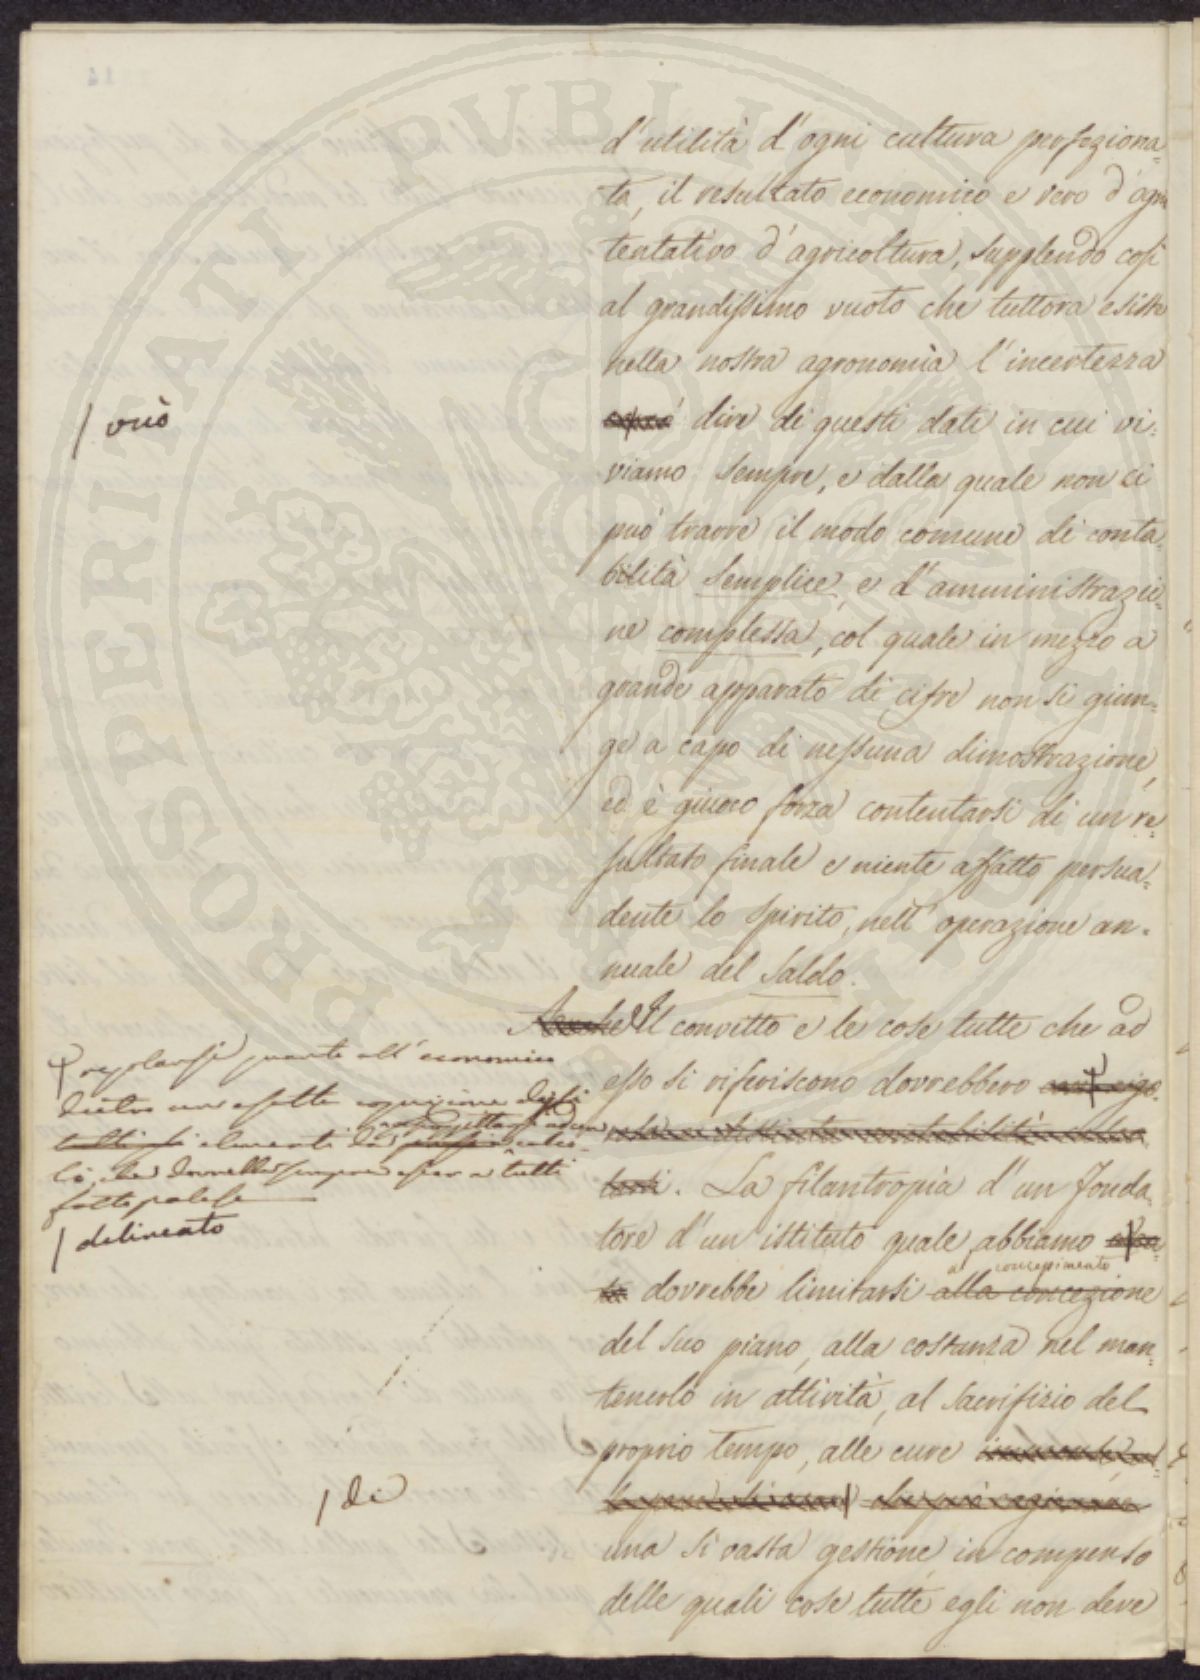 d'utilità d'ogni cultura perfeziona-
ta, il resultato economico e vero d'ogni
tentativo d'agricoltura, supplendo così
al grandissimo vuoto che tuttora esiste
nella nostra agronomia l'incertezza
/ vuò
dire di questi dati in cui vi-
viamo sempre, e dalla quale non ci
può trarre il modo comune di conta-
bilità semplice, e d'amministrazio-
ne complessa, col quale in mezzo a
grande apparato di cifre non si giun-
ge a capo di nessuna dimostrazione,
ed è giuoco forza contentarsi di un re-
sultato finale e niente affatto persua-
dente lo spirito, nell'operazione an-
nuale del saldo.
Anche Il convitto e le cose tutte che ad
esso si riferiscono dovrebbero
regolarsi quanto all'economico
dietro una esatta
elementi
tutti
fatto palese
. La filantropia d'un fonda-
tore d'un istituto quale abbiamo
/ delineato
al concepimento
dovrebbe limitarsi alla concezione
del suo piano, alla costanza nel man-
tenerlo in attività, al sacrifizio del
proprio tempo, alle cure
/ di
una sì vasta gestione, in compenso
delle quali cose tutte egli non deve
PVBLICAE PROSPERITATI